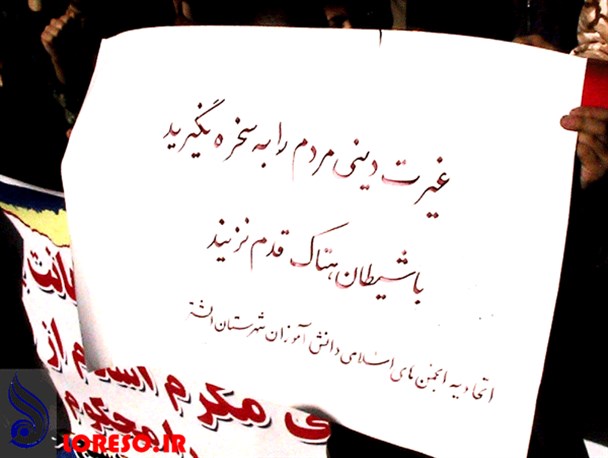 غیرت دینی مردم را به سخره نگیرید
با شیطان هتاک قدم نزنید
اتحادیه انجمن های اسلامی دانش آموزان شهرستان الشتر
ی مکرم اسلام از
محکوم
LORESO.IR